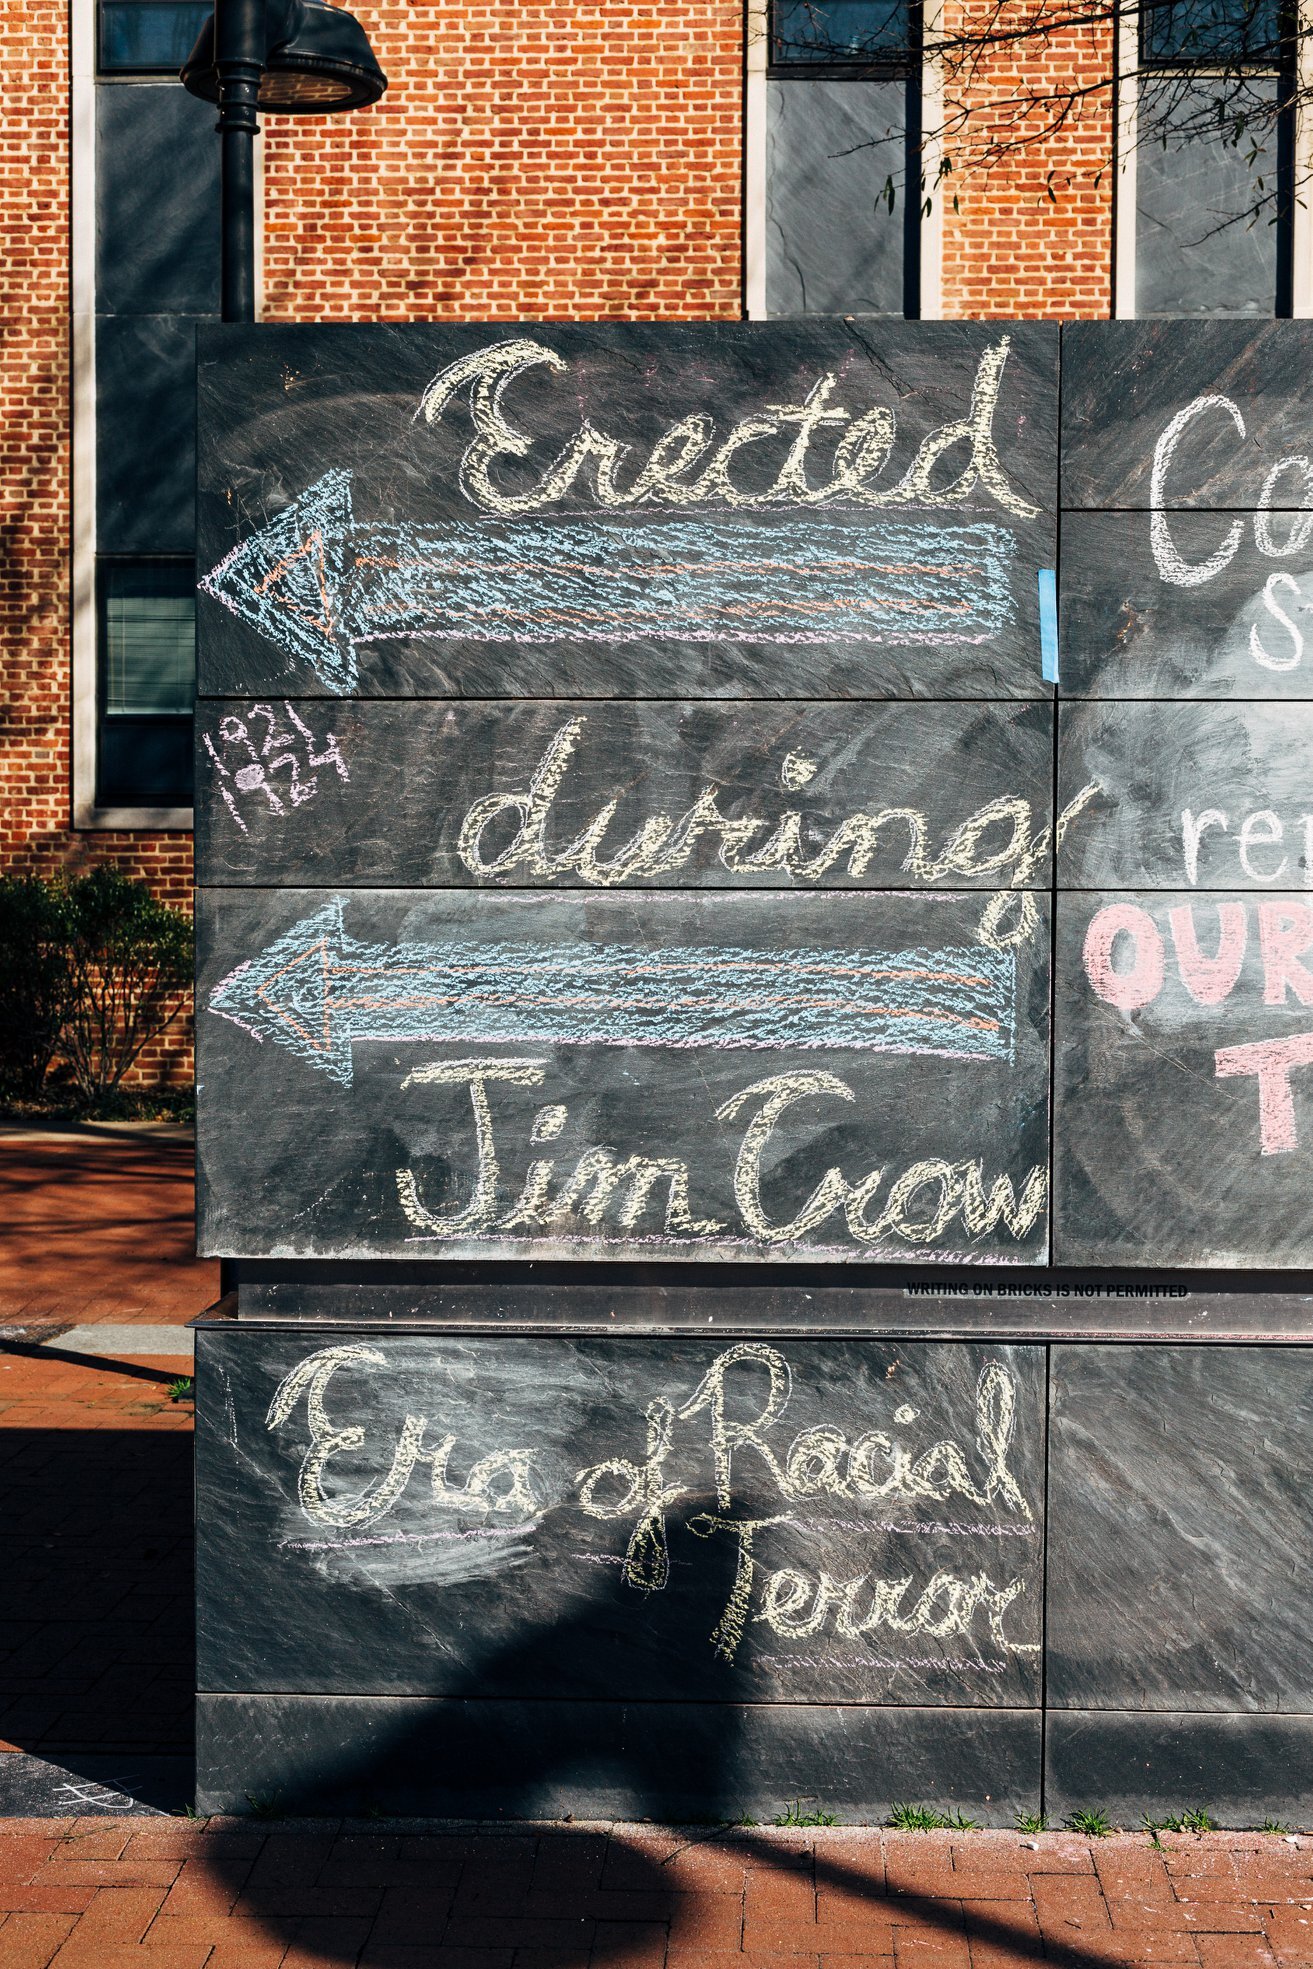 Erected
1921
1924
during
Jim Crow
WRITING ON BRICKS IS NOT PERMITTED
Era of Racial
Terror
Co
S
re
OUR
T